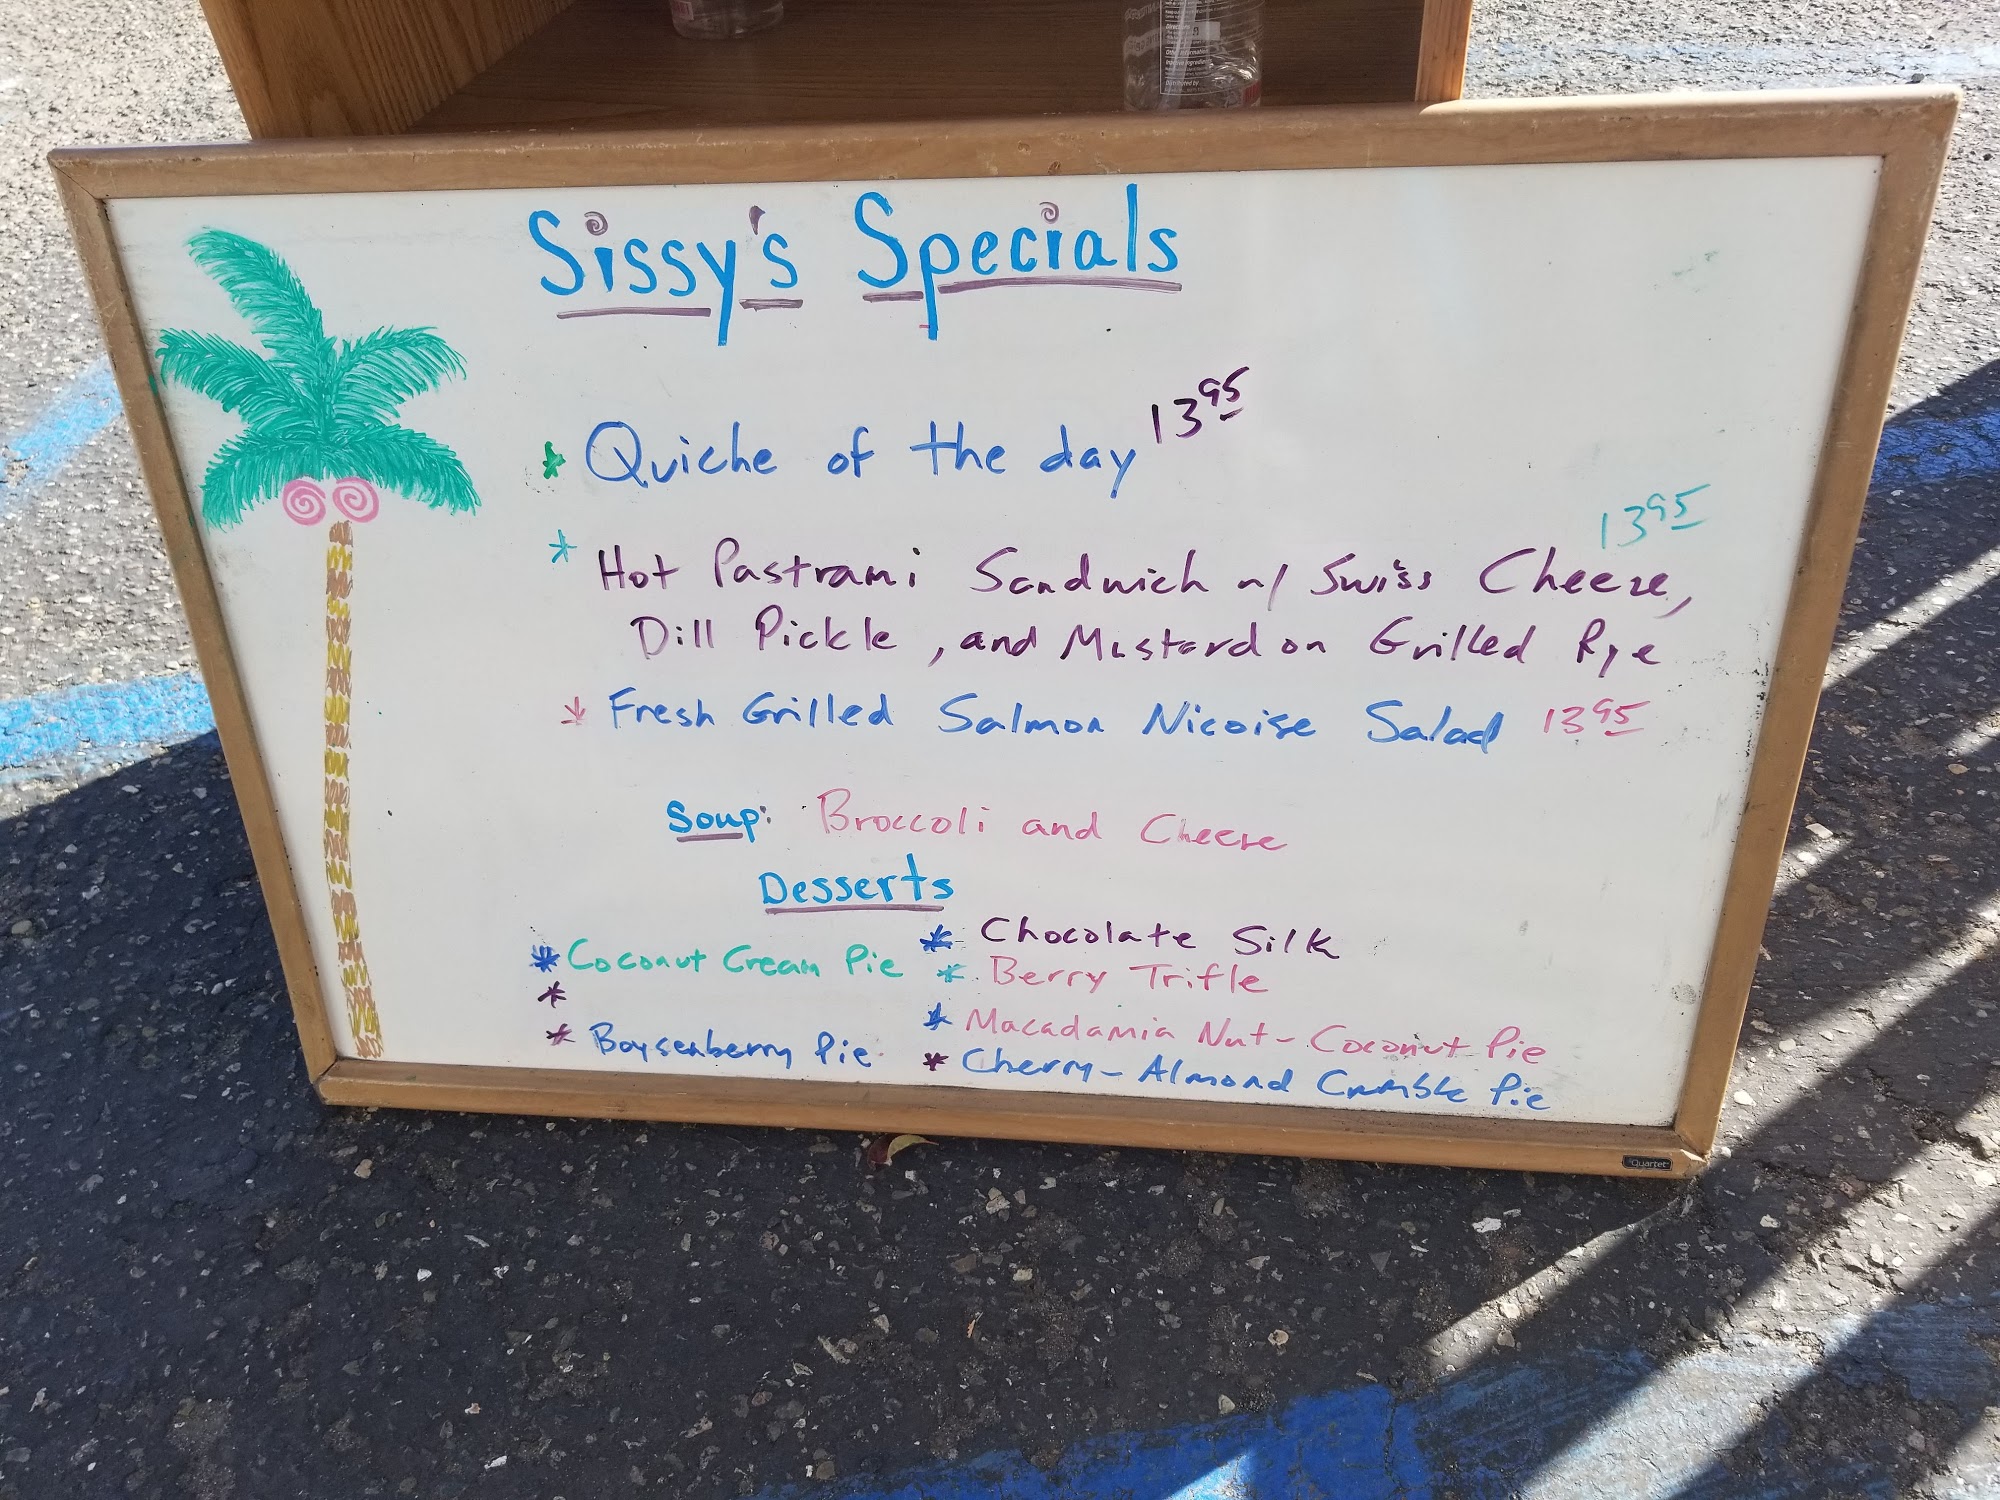 Sissy's Specials
* Quiche of the day 13 95
13 95
* Hot Pastrami Sandwich w/ Swiss Cheese,
Dill Pickle, and Mustard on Grilled Rye
* Fresh Grilled Salmon Nicoise Salad 13 95
Soup: Broccoli and Cheese
Desserts
* Coconut Cream Pie
*
* Boysenberry Pie
* Chocolate Silk
* Berry Trifle
* Macadamia Nut-Coconut Pie
* Cherry-Almond Crumble Pie
Quartet